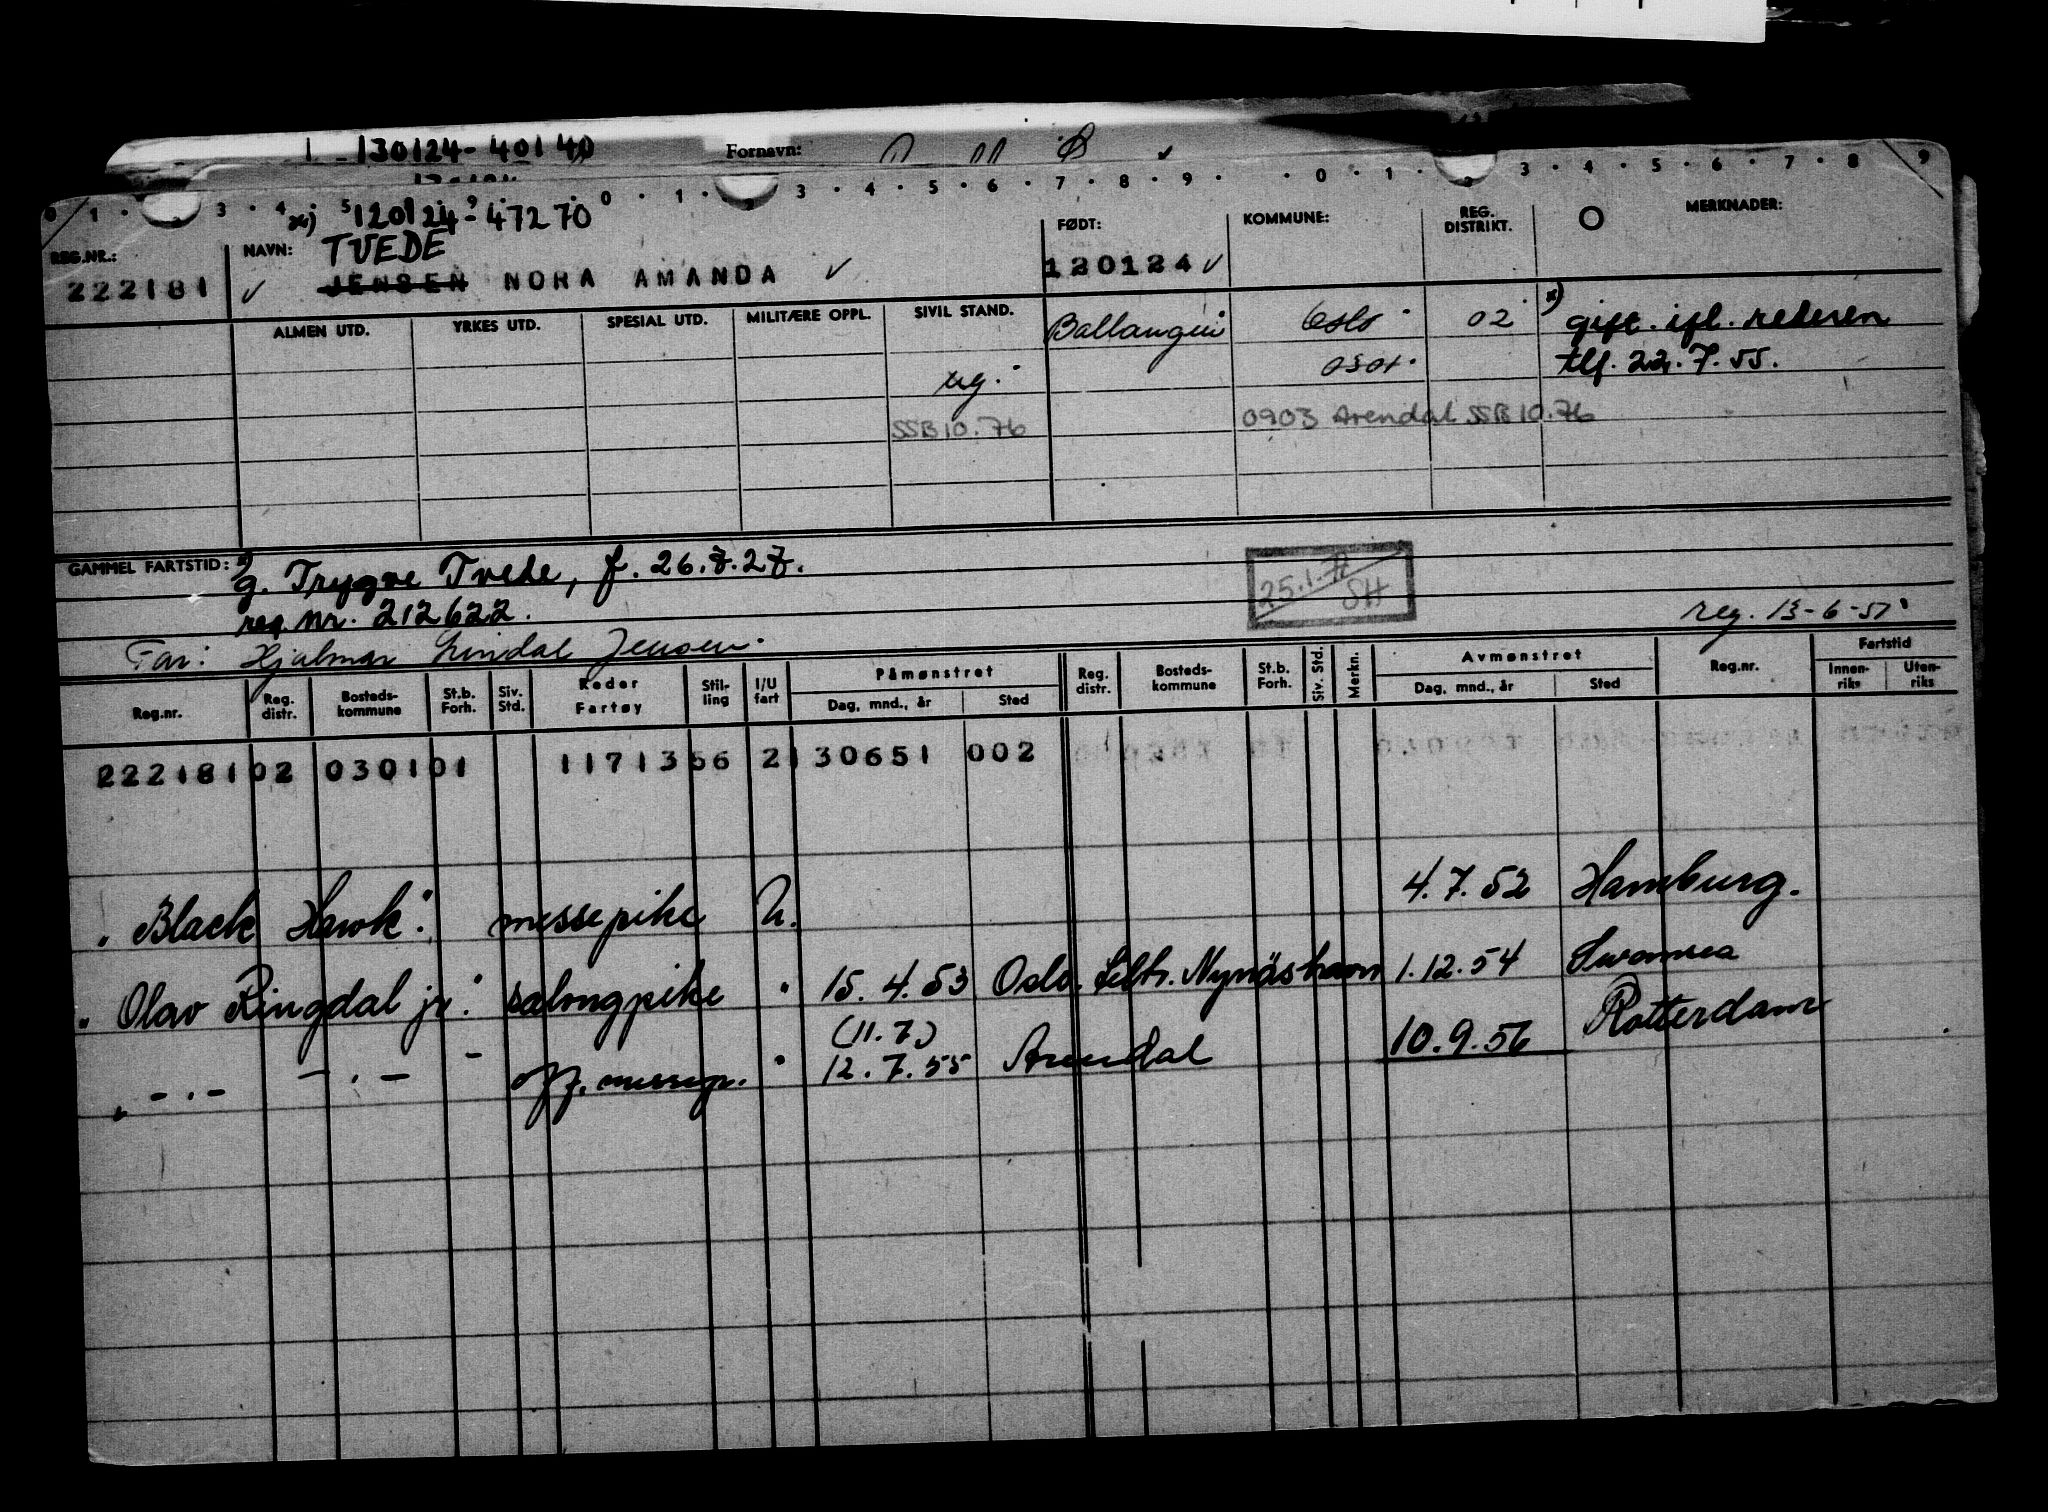 130124-40140
Fornavn:
0 1 3 4 5 9 0 1 2 3 4 5 6 7 8 9 0 1 2 3 4 5 6 7 8 9
x) 120124-47270
REG.NR.: NAVN: TVEDE FØDT: KOMMUNE: REG. DISTRIKT. MERKNADER:
222181 JENSEN NORA AMANDA 120124
ALMEN UTD. YRKES UTD. SPESIAL UTD. MILITÆRE OPPL. SIVIL STAND. Ballangen Oslo 02 x) gift. ifl. rederen
ug. 0301 tlf. 22.7.55.
SSB10.76 0903 Arendal SSB10.76
GAMMEL FARTSTID: g. Trygve Tvede, f. 26.7.27.
25.1.71 SH
reg. nr. 212622.
reg. 13-6-51
Far: Hjalmar Lindal Jensen.
Reg.nr. Reg. distr. Bosteds-kommune St.b. Forh. Siv. Std. Reder Fartøy Stil-ling I/U fart Påmønstret Dag, mnd., år Sted Reg. distr. Bosteds-kommune St.b. Forh. Siv. Std. Merkn. Avmønstret Dag, mnd., år Sted Reg.nr. Fartstid Innen-riks Uten-riks
222181 02 0301 01 1171356 2 130651 002
"Black Hawk". messepike U. 4.7.52 Hamburg.
"Olav Ringdal jr." salongpike " 15.4.53 Oslo. Nynäshamn 1.12.54 Swansea
(11.7)
" - . - - . - " off. messep. " 12.7.55 Arendal 10.9.56 Rotterdam